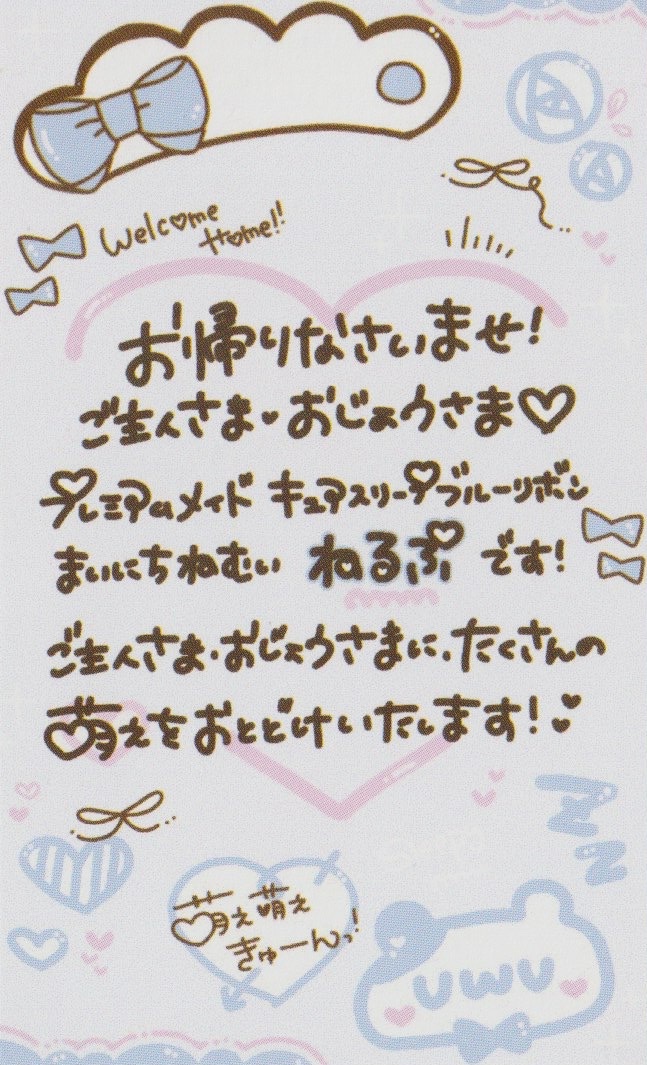 Welcome
Home!!
お帰りなさいませ!
ご主人さま・おじょうさま♡
プレミアムメイド キュアスリープブルーリボン
まいにちねむい ねるぷ です!
ご主人さま・おじょうさまに、たくさんの
萌えをおとどけいたします!
萌え萌え
きゅーんっ!
UWU